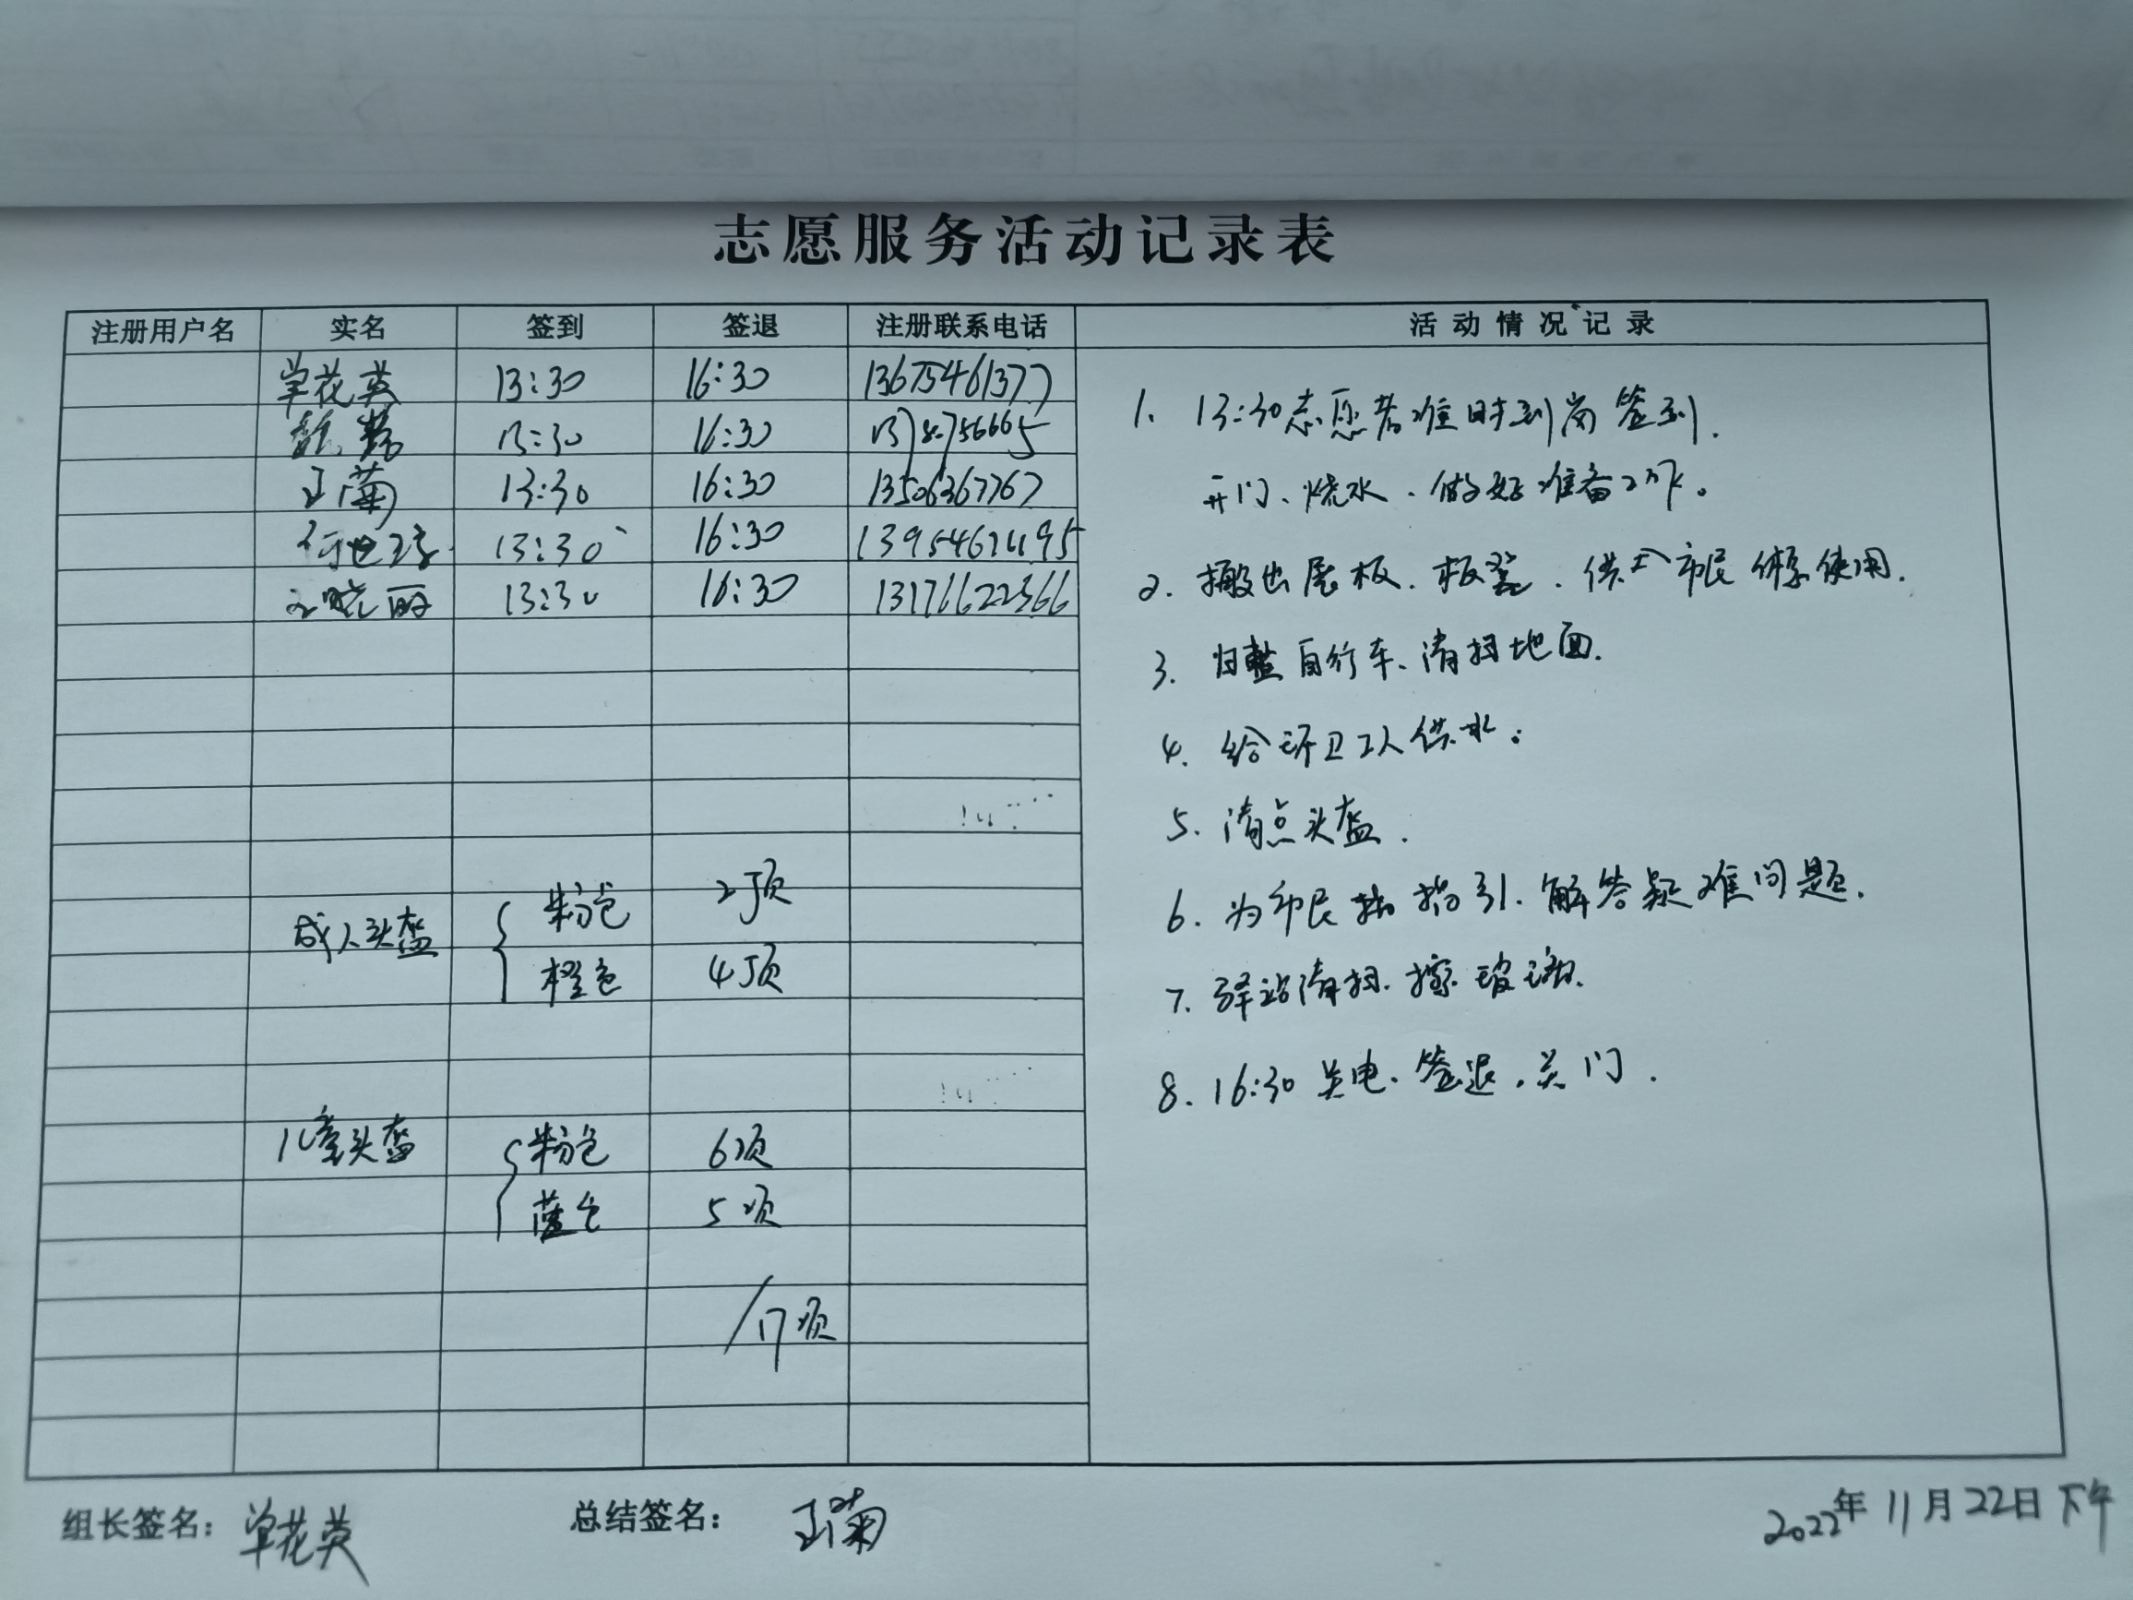 志愿服务活动记录表
注册用户名 实名 签到 签退 注册联系电话 活动情况记录
单花英 13:30 16:30 13675461377
13:30 16:30
王菊 13:30 16:30 13506367767
13:30 16:30
晓丽 13:30 16:30 13176622366
成人头盔 粉色 2顶
橙色 4顶
儿童头盔 粉色 6顶
蓝色 5顶
17顶
1. 13:30志愿者准时到岗签到.
开门、烧水、做好准备工作。
2. 搬出展板、板凳、供市民休息使用.
3. 归整自行车、清扫地面.
4. 给环卫工人供水。
5. 清点头盔.
6. 为市民指引.解答疑难问题.
7. 驿站清扫.擦玻璃.
8. 16:30关电、签退.关门.
组长签名: 单花英 总结签名: 王菊 2022年11月22日下午